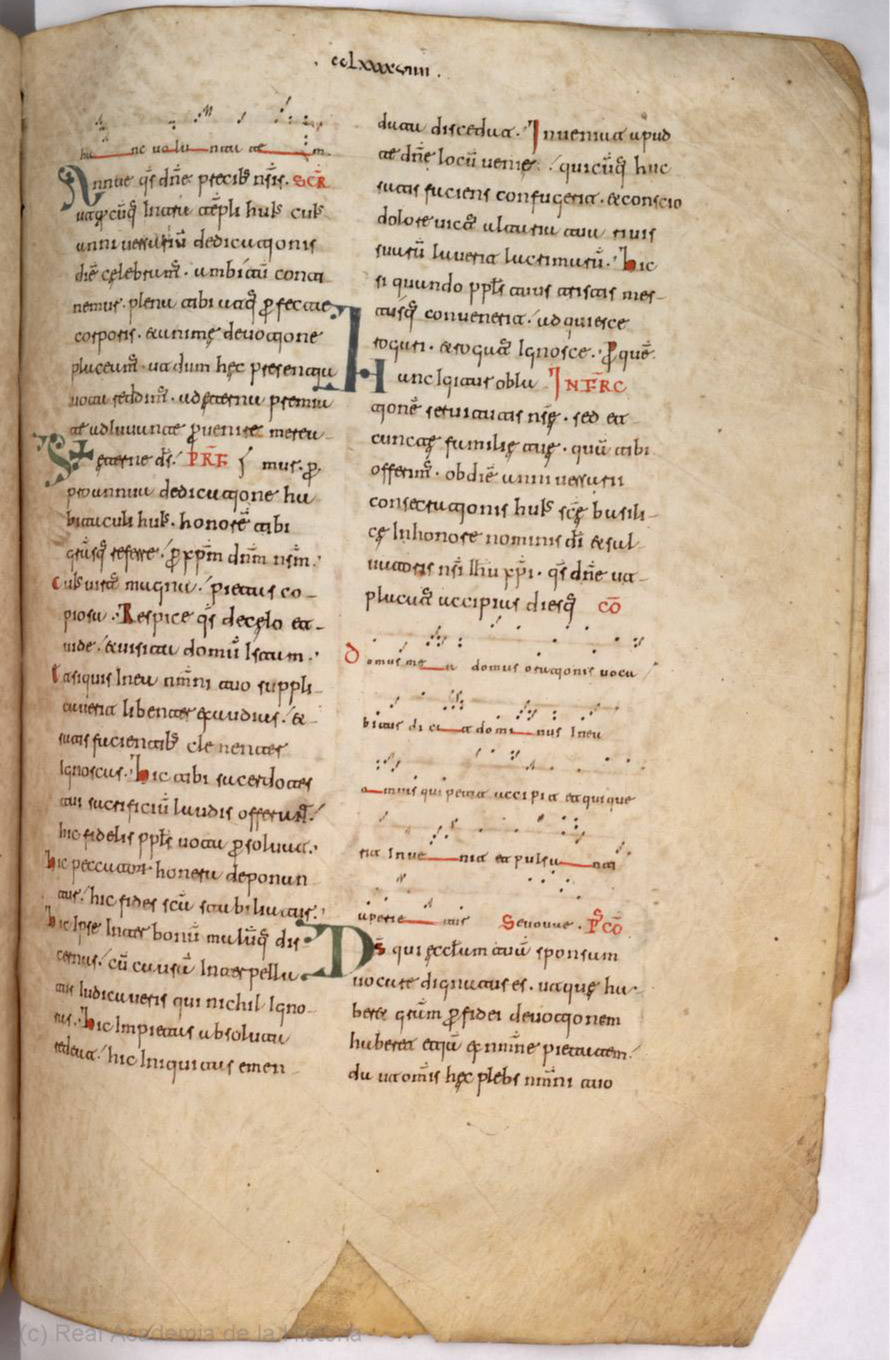 . ccLxxxxviiii .
hu nc uolu ntat ae m
Annue qs dñe precib nrīs . SCR̄
ut qcuq Intra tēpli huis cuis
anniuersariū dedicationis
diē celebram̄ . ambitū conti
nemus . plena tibi atq perfecta
corporis . & anime deuotione
placeam̄ . ut dum hęc presentia
uota reddim̄ . ad ęterna premia
te adiuuante peruenire merea
ęterne d̄s . PRF
pro annua dedicatione ta
bernaculi huis . honorē tibi
gr̄asq referre . per xpm dn̄m nr̄m .
Cuis uirt̄ magna . pietas co-
piosa . Respice qs decęlo et
uide . & uisita domū Istam .
Ut siquis Inea nm̄ni tuo suppli
cauerit libenter exaudias . &
satisfacientib clementer
Ignoscas . hic tibi sacerdotes
tui sacrificiū laudis offerant .
hic fidelis ppl̄s uota persoluat .
hic peccatorum honera deponun
tur . hic fides scā stabilitur .
hic Ipse Inter bonū malūq dis
cernis . cū causā Interpella
tus Iudicaueris qui nichil Igno
ras . hic Impietas absoluta
redeat . hic Iniquitas emen
data discedat . Inueniat apud
te dn̄e locū uenie . quicūq huc
satisfaciens confugerit . & conscio
dolore uict̄ altaria tua riuis
suarū lauerit lacrimarū . hic
si quando ppl̄s tuus tristis mes-
tusq conuenerit . adquiesce
rogari . & rogat̄ Ignosce . per quē .
Hanc Igitur obla INFRC
tionē seruitutis nr̄ę . sed et
cunctę familię tuę . quā tibi
offerim̄ . obdiē anniuersarii
consecrationis huis scę basili-
cę Inhonore nominis dī & sal
uatoris nr̄i Ihu xpi . qs dn̄e ut
placat̄ accipias diesq CŌ
Domus me a domus orationis uoca
bitur di ci t domi nus Inea
o mnis qui petit accipit et qui que
rit Inue nit et pulsa nti
aperie tur Seuouae . PS CŌ
Ds qui ęcclam tuā sponsam
uocare dignatus es . ut quę ha-
beret gr̄am per fidei deuotionem
haberet etiā ex nm̄ne pietatem .
da ut om̄is hęc plebs nm̄ni tuo
(c) Real Academia de la Historia